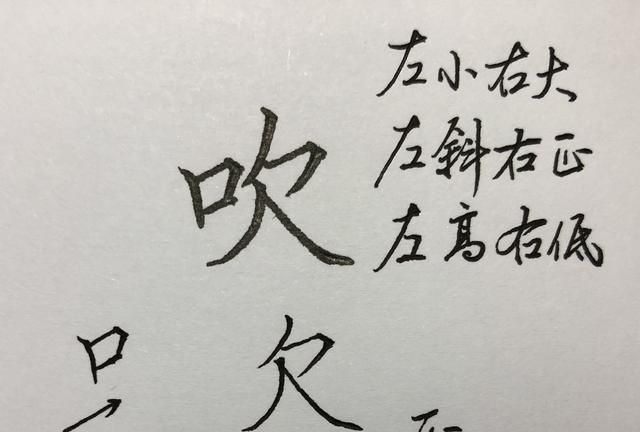 左小右大
左斜右正
左高右低
吹
口 欠